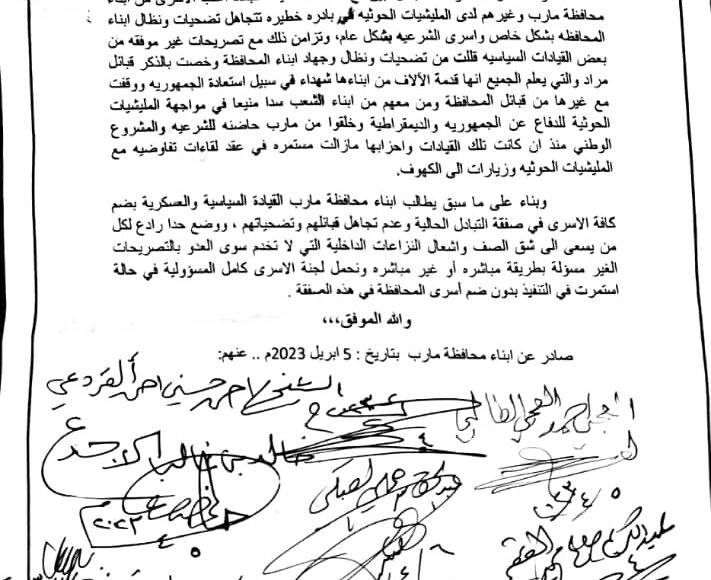 محافظة مارب وغيرهم لدى المليشيات الحوثيه في بادره خطيره تتجاهل تضحيات ونظال ابناء
المحافظه بشكل خاص واسرى الشرعيه بشكل عام، وتزامن ذلك مع تصريحات غير موفقه من
بعض القيادات السياسيه قللت من تضحيات ونظال وجهاد ابناء المحافظة وخصت بالذكر قبائل
مراد والتي يعلم الجميع انها قدمة الآلاف من ابناءها شهداء في سبيل استعادة الجمهوريه ووقفت
مع غيرها من قبائل المحافظة ومن معهم من ابناء الشعب سدا منيعا في مواجهة المليشيات
الحوثية للدفاع عن الجمهوريه والديمقراطية وخلقوا من مارب حاضنه للشرعيه والمشروع
الوطني منذ ان كانت تلك القيادات واحزابها مازالت مستمره في عقد لقاءات تفاوضيه مع
المليشيات الحوثيه وزيارات الى الكهوف.
وبناء على ما سبق يطالب ابناء محافظة مارب القيادة السياسية والعسكرية بضم
كافة الاسرى في صفقة التبادل الحالية وعدم تجاهل قبائلهم وتضحياتهم ، ووضع حدا رادع لكل
من يسعى الى شق الصف واشعال النزاعات الداخلية التي لا تخدم سوى العدو بالتصريحات
الغير مسؤلة بطريقة مباشره أو غير مباشره ونحمل لجنة الاسرى كامل المسؤولية في حالة
استمرت في التنفيذ بدون ضم أسرى المحافظة في هذه الصفقة .
والله الموفق،،،
صادر عن ابناء محافظة مارب بتاريخ : 5 ابريل 2023م .. عنهم:
الشيخ احمد حسين احمد القردعي
خالد بن غالب الاجدع
٢٠٢٣